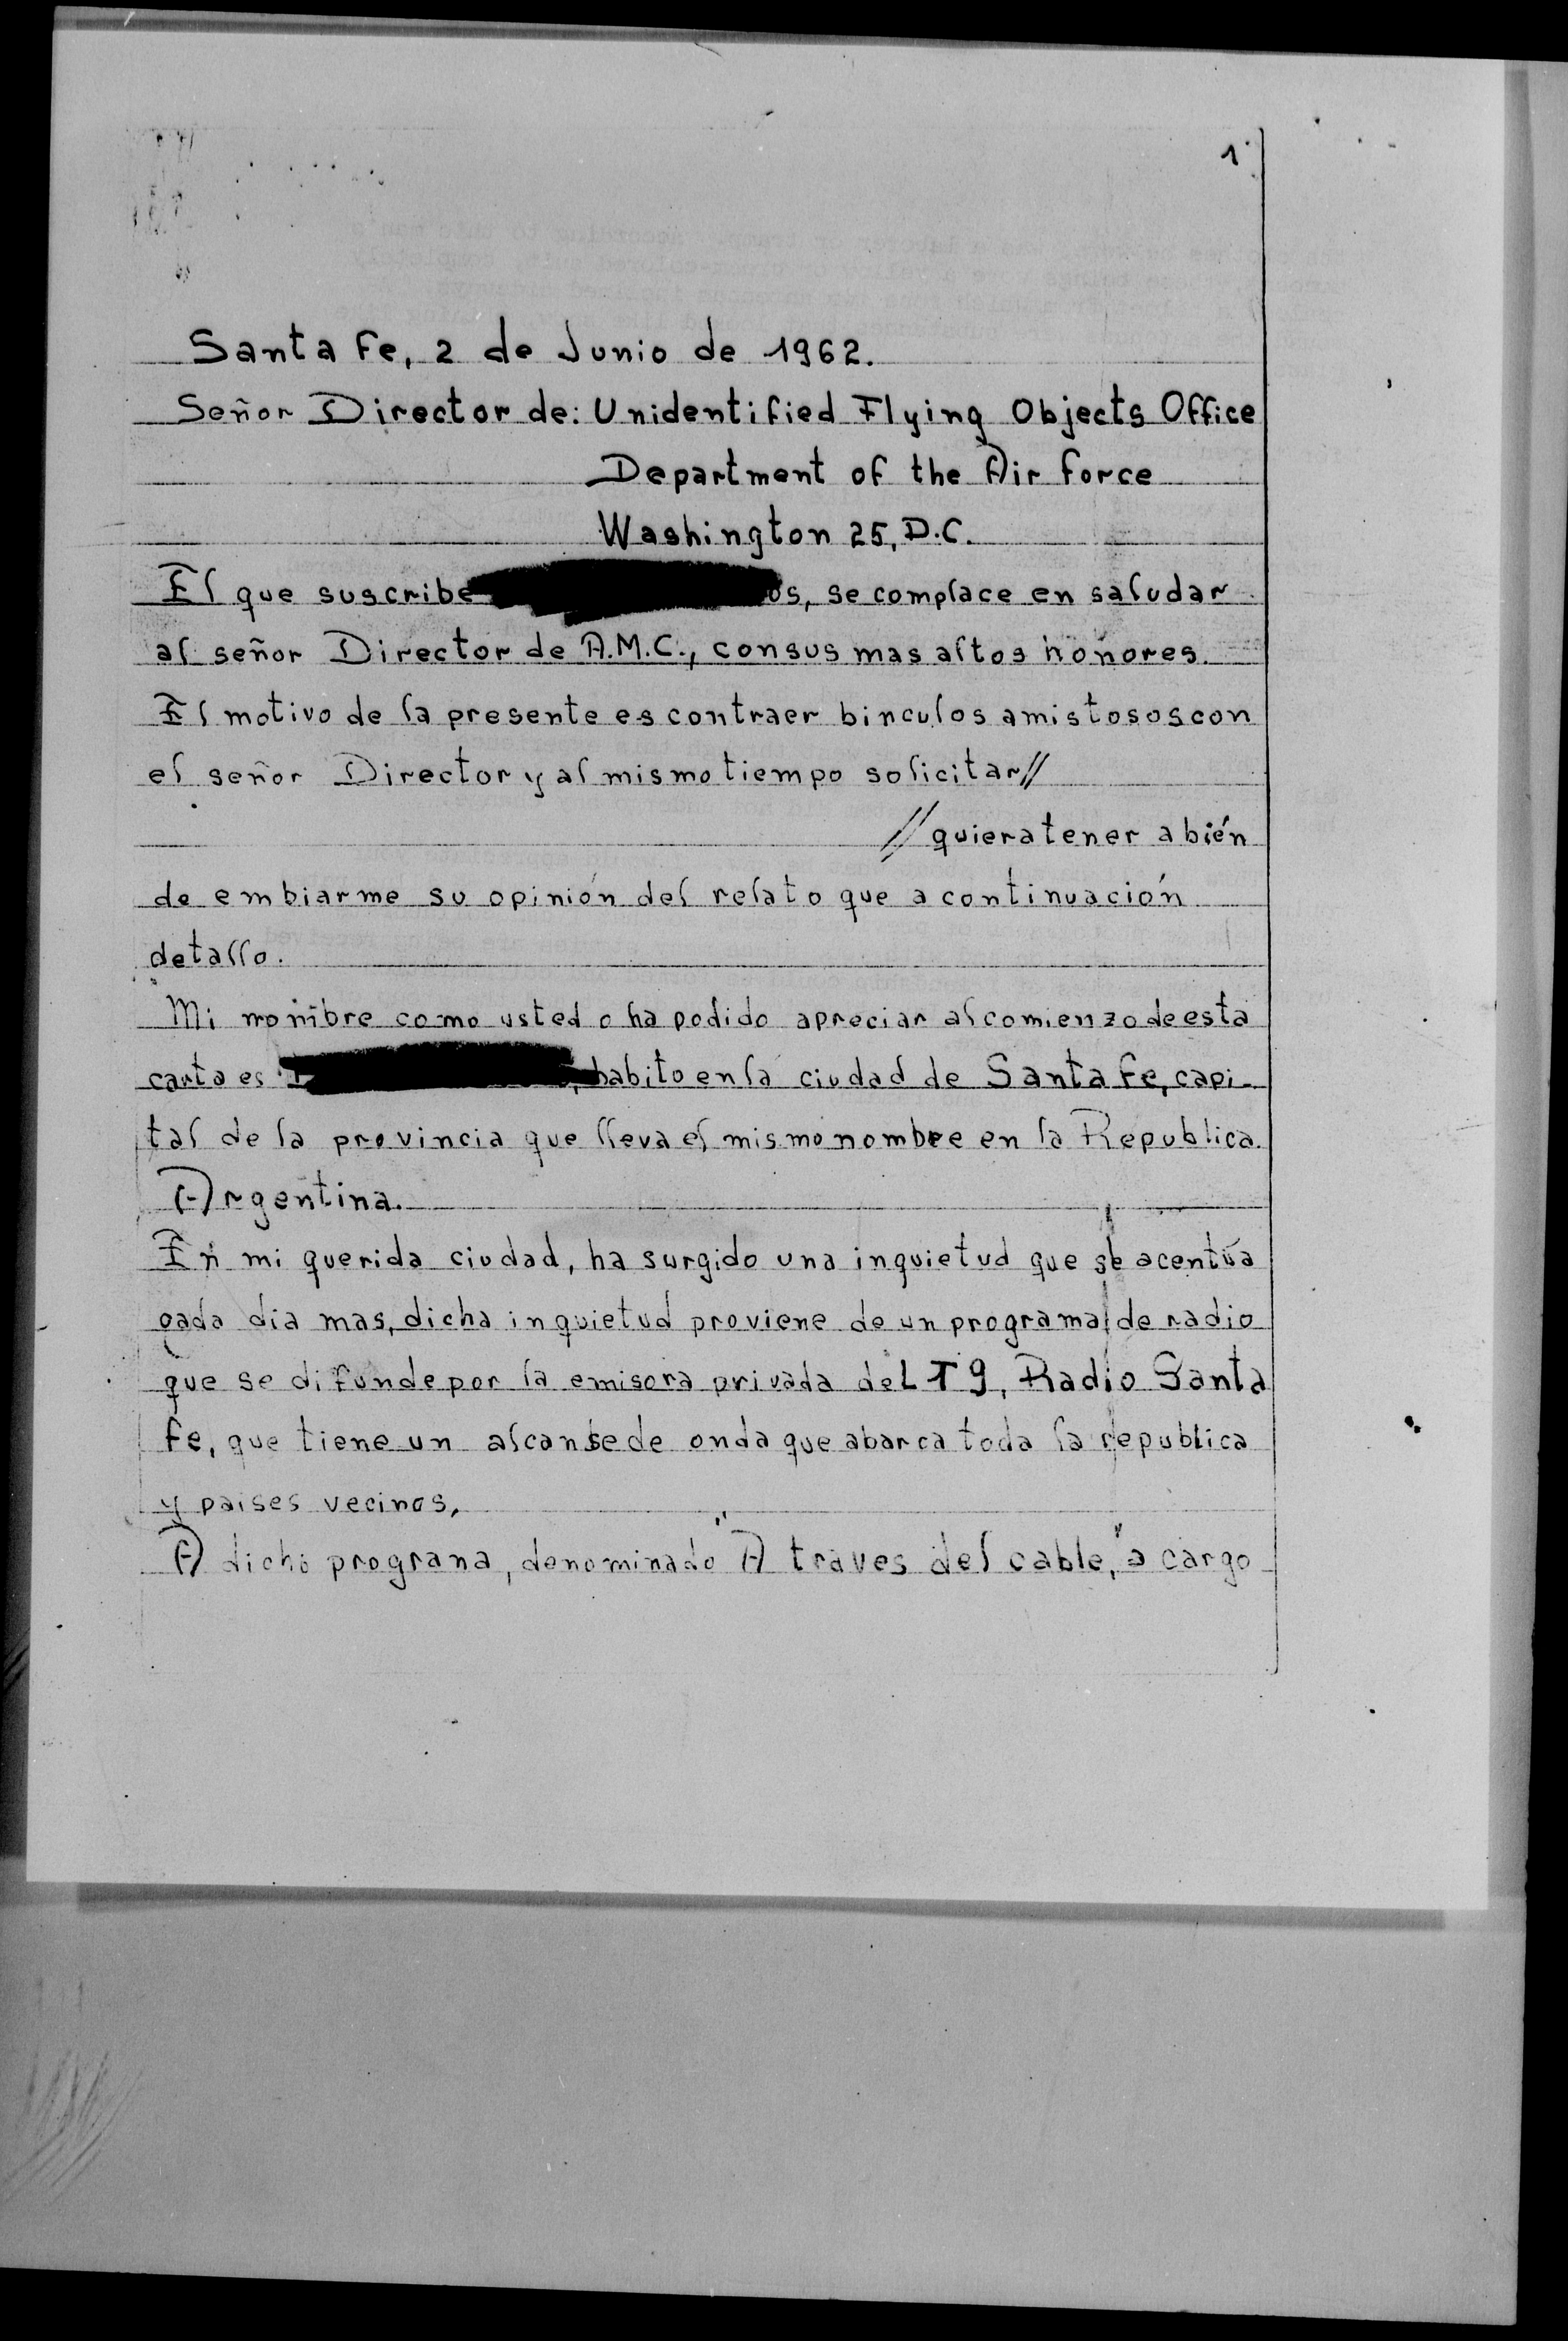 1
Santa Fe, 2 de Junio de 1962.
Señor Director de: Unidentified Flying Objects Office
Department of the Air Force
Washington 25, D.C.
El que suscribe os, se complace en saludar
al señor Director de A.M.C., con sus mas altos honores.
El motivo de la presente es contraer binculos amistosos con
el señor Director y al mismo tiempo solicitar//
//quiera tener a bién
de embiarme su opinión del relato que a continuación
detallo.
Mi nombre como usted o ha podido apreciar al comienzo de esta
carta es , habito en la ciudad de Santa Fe, capi-
tal de la provincia que lleva el mismo nombre en la Republica
Argentina.
En mi querida ciudad, ha surgido una inquietud que se acentúa
cada dia mas, dicha inquietud proviene de un programa de radio
que se difunde por la emisora privada de LT9, Radio Santa
Fe, que tiene un alcanse de onda que abarca toda la republica
y paises vecinos,
A dicho prograna, denominado "A traves del cable," a cargo